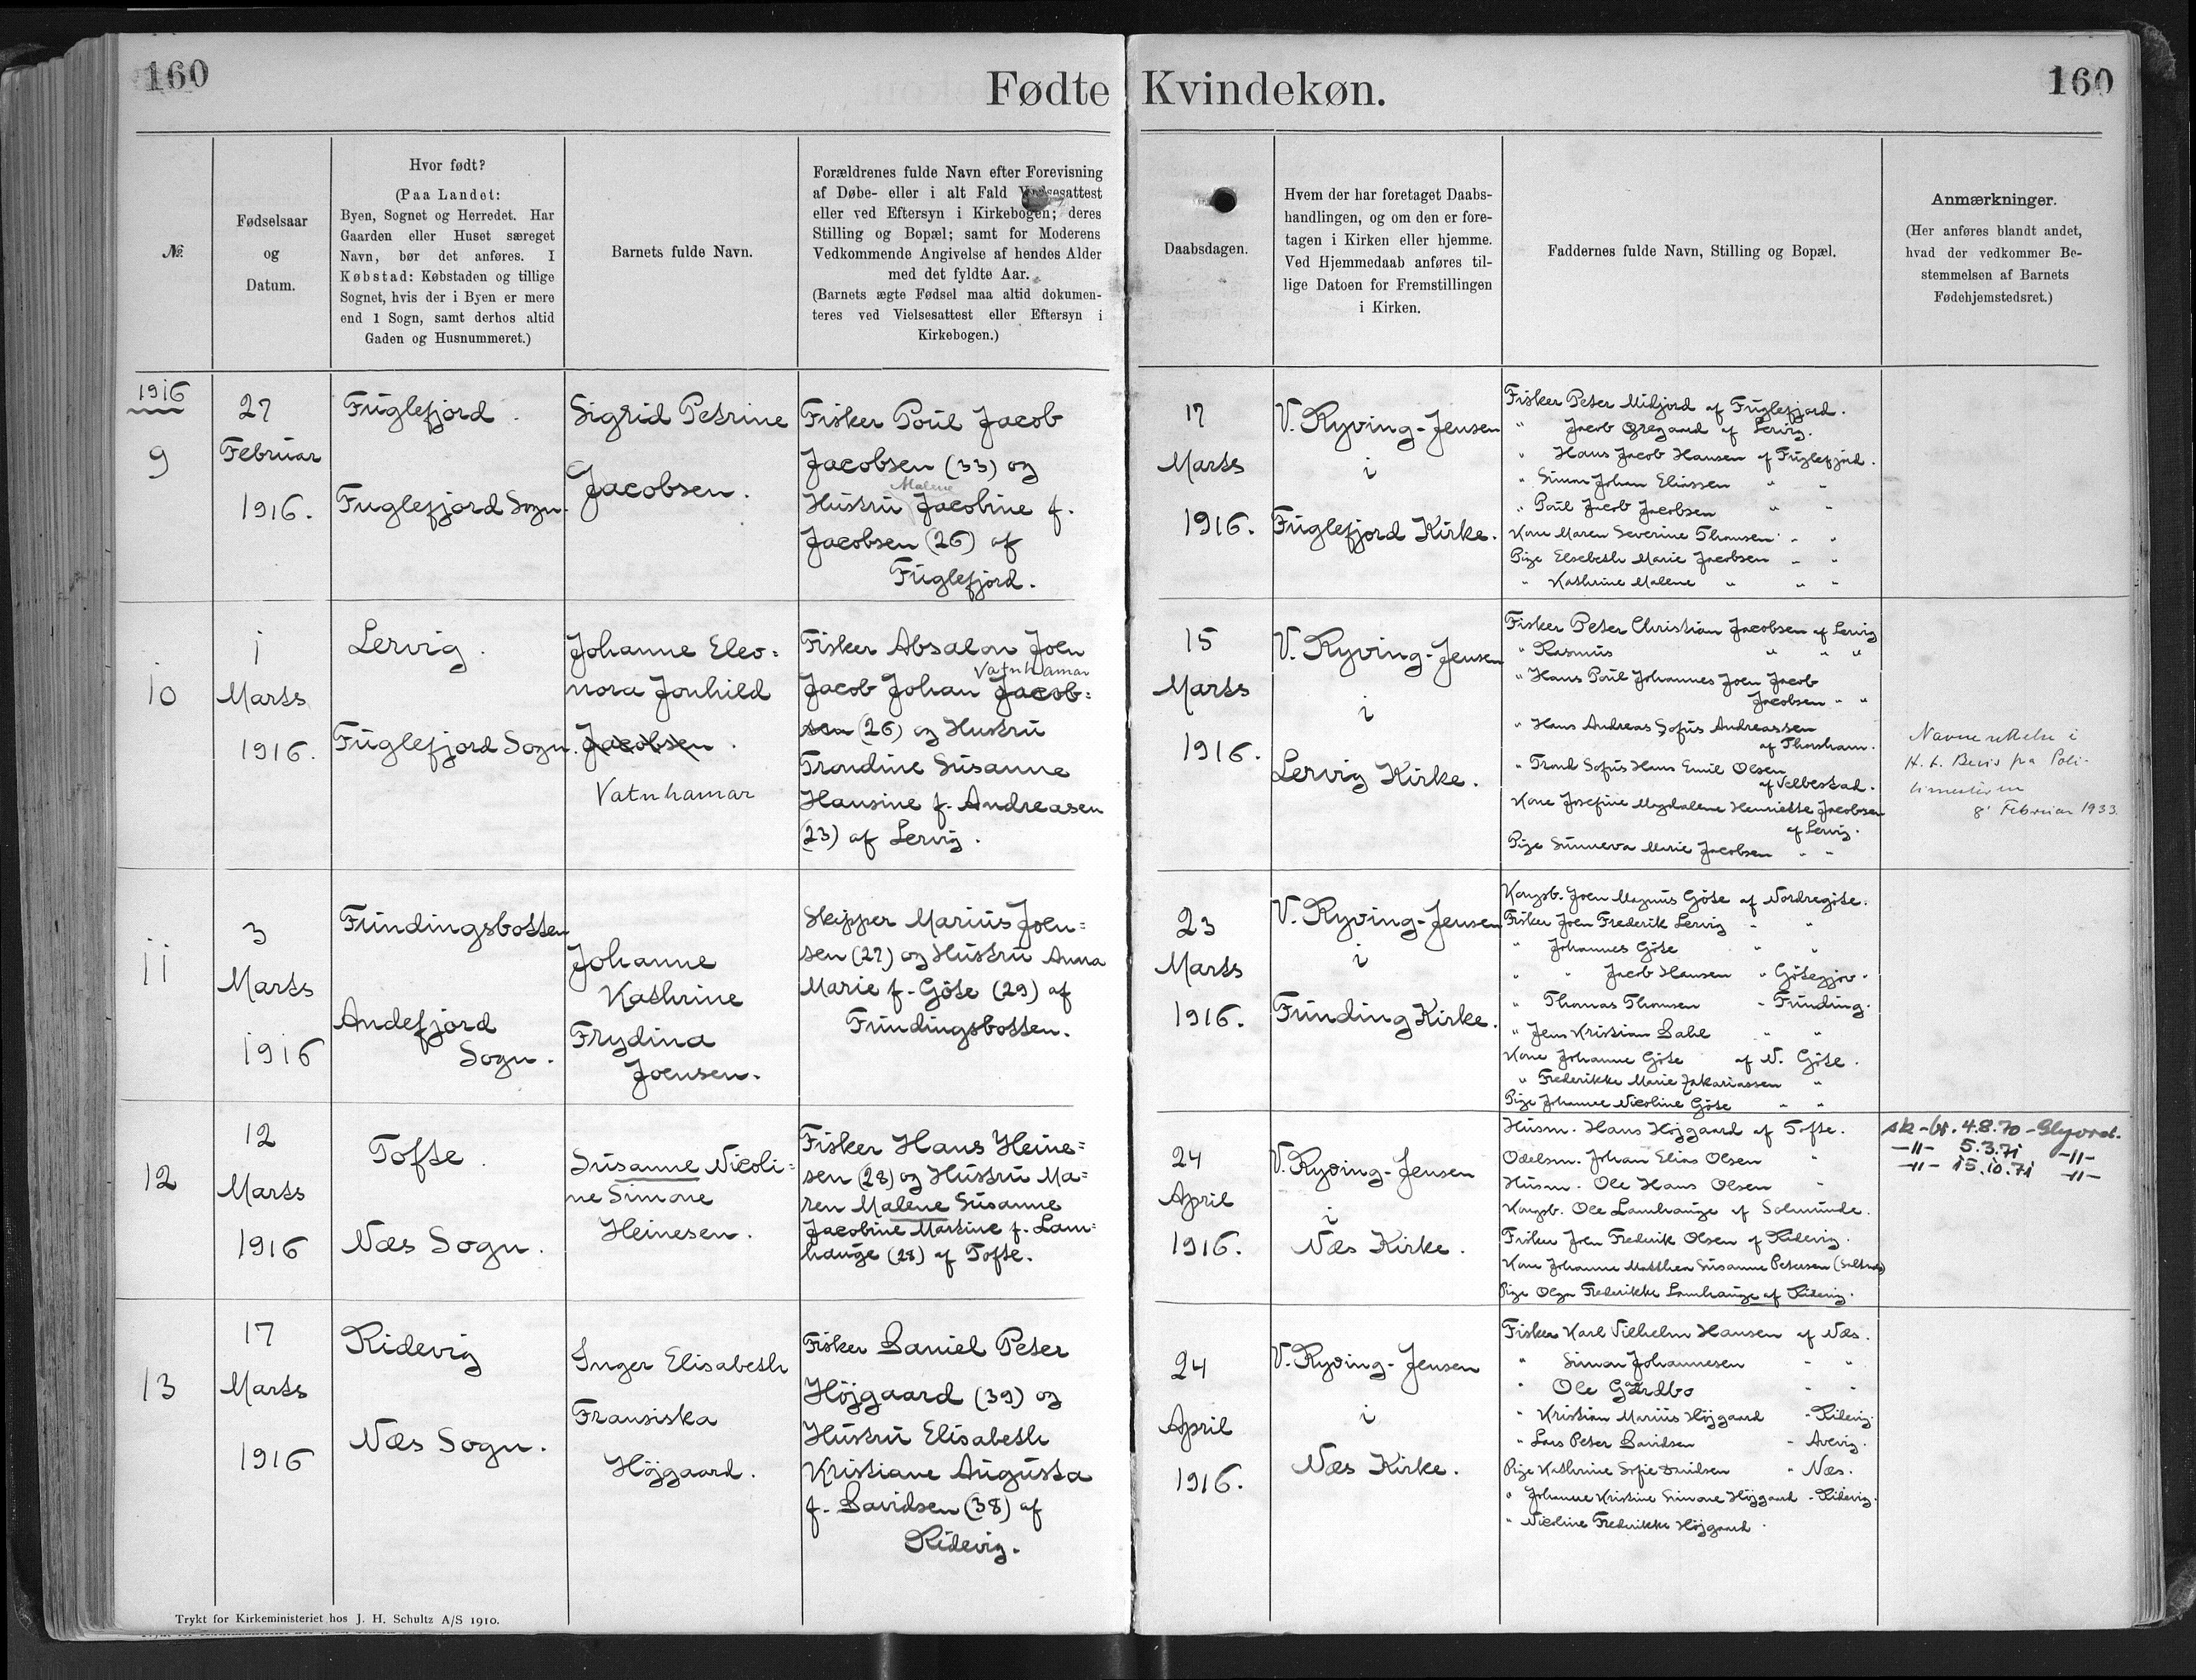 160
Fødte
Kvindekøn.
160
№
Fødselsaar
og
Datum.
Hvor født?
(Paa Landet:
Byen, Sognet og Herredet. Har
Gaarden eller Huset særeget
Navn, bør det anføres. I
Købstad: Købstaden og tillige
Sognet, hvis der i Byen er mere
end 1 Sogn, samt derhos altid
Gaden og Husnummeret.)
Barnets fulde Navn.
Forældrenes fulde Navn efter Forevisning
af Døbe- eller i alt Fald Vielsesattest
eller ved Eftersyn i Kirkebogen; deres
Stilling og Bopæl; samt for Moderens
Vedkommende Angivelse af hendes Alder
med det fyldte Aar.
(Barnets ægte Fødsel maa altid dokumen-
teres ved Vielsesattest eller Eftersyn i
Kirkebogen.)
Daabsdagen.
Hvem der har foretaget Daabs-
handlingen, og om den er fore-
tagen i Kirken eller hjemme.
Ved Hjemmedaab anføres til-
lige Datoen for Fremstillingen
i Kirken.
Faddernes fulde Navn, Stilling og Bopæl.
Anmærkninger.
(Her anføres blandt andet,
hvad der vedkommer Be-
stemmelsen af Barnets
Fødehjemstedsret.)
1916
9
27
Februar
1916.
Fuglefjord.
Fuglefjord Sogn.
Sigrid Petrine
Jacobsen.
Fisker Poul Jacob
Jacobsen (33) og
Malene
Hustru Jacobine f.
Jacobsen (26) af
Fuglefjord.
17
Marts
1916.
V. Ryving-Jensen
i
Fuglefjord Kirke.
Fisker Peter Midjord af Fuglefjord.
" Jacob Øregaard af Lervig.
" Hans Jacob Hansen af Fuglefjord.
" Simon Johan Eliassen " "
" Poul Jacob Jacobsen " "
Kone Maren Severine Thomsen " "
Pige Elsebeth Marie Jacobsen " "
" Kathrine Malene " " "
10
1
Marts
1916.
Lervig.
Fuglefjord Sogn.
Johanne Eleo=
nora Jonhild
Jacobsen.
Vatnhamar
Fisker Absalon Joen
Vatnhamar
Jacob Johan Jacob=
sen (26) og Hustru
Trondine Susanne
Hansine f. Andreasen
(23) af Lervig.
15
Marts
1916.
V. Ryving-Jensen
i
Lervig Kirke.
Fisker Peter Christian Jacobsen af Lervig
" Rasmus " " "
" Hans Poul Johannes Joen Jacob
Jacobsen " "
" Hans Andreas Sofus Andreassen
af Thorshavn.
" Trond Sofus Hans Emil Olsen
af Velbestad.
Kone Josefine Magdalene Henriette Jacobsen
af Lervig.
Pige Sunneva Marie Jacobsen " "
Navnerettelse i
H. t. Bevis fra Poli-
timesteren
8' Februar 1933.
11
3
Marts
1916
Fundingsbotten
Andefjord
Sogn.
Johanne
Kathrine
Frydina
Joensen.
Skipper Marius Joen=
sen (27) og Hustru Anna
Marie f. Göte (29) af
Fundingsbotten.
23
Marts
1916.
V. Ryving-Jensen
i
Funding Kirke.
Kongsb. Joen Magnus Göte af Nordregöte.
Fisker Joen Frederik Lervig " "
" Johannes Göte " "
" " Jacob Hansen " Götegjov.
" Thomas Thomsen " Funding.
" Jens Kristian Dahl " "
Kone Johanne Göte af N. Göte.
" Frederikke Marie Zakariassen "
Pige Johanne Nicoline Göte " "
12
12
Marts
1916
Tofte.
Næs Sogn.
Susanne Nicoli=
ne Simone
Heinesen.
Fisker Hans Heine=
sen (28) og Hustru Ma=
ren Malene Susanne
Jacobine Martine f. Lam=
hauge (28) af Tofte.
24
April
1916.
V. Ryving-Jensen
i
Næs Kirke.
Husm. Hans Højgaard af Tofte.
Odelsm. Johan Elias Olsen "
Husm. Ole Hans Olsen "
Kongsb. Ole Lamhauge af Solmunde.
Fisker Joen Frederik Olsen af Ridevig.
Kone Johanne Matthea Susanne Petersen
Pige Olga Frederikke Lamhauge af Ridevig.
sk-br. 4.8.70 -
-"- 5.3.71 -"-
-"- 15.10.71 -"-
13
17
Marts
1916
Ridevig
Næs Sogn.
Inger Elisabeth
Fransiska
Højgaard.
Fisker Daniel Peter
Højgaard (39) og
Hustru Elisabeth
Kristiane Augusta
f. Davidsen (38) af
Ridevig.
24
April
1916.
V. Ryving-Jensen
i
Næs Kirke.
Fisker Karl Vilhelm Hansen af Næs.
" Simon Johannesen " "
" Ole Gaardbo " "
" Kristian Marius Højgaard " Ridevig.
" Lars Peter Davidsen " Avevig.
Pige Kathrine Sofie Davidsen " Næs.
" Johanne Kristine Simone Højgaard " Ridevig.
" Nicoline Frederikke Højgaard
Trykt for Kirkeministeriet hos J. H. Schultz A/S 1910.